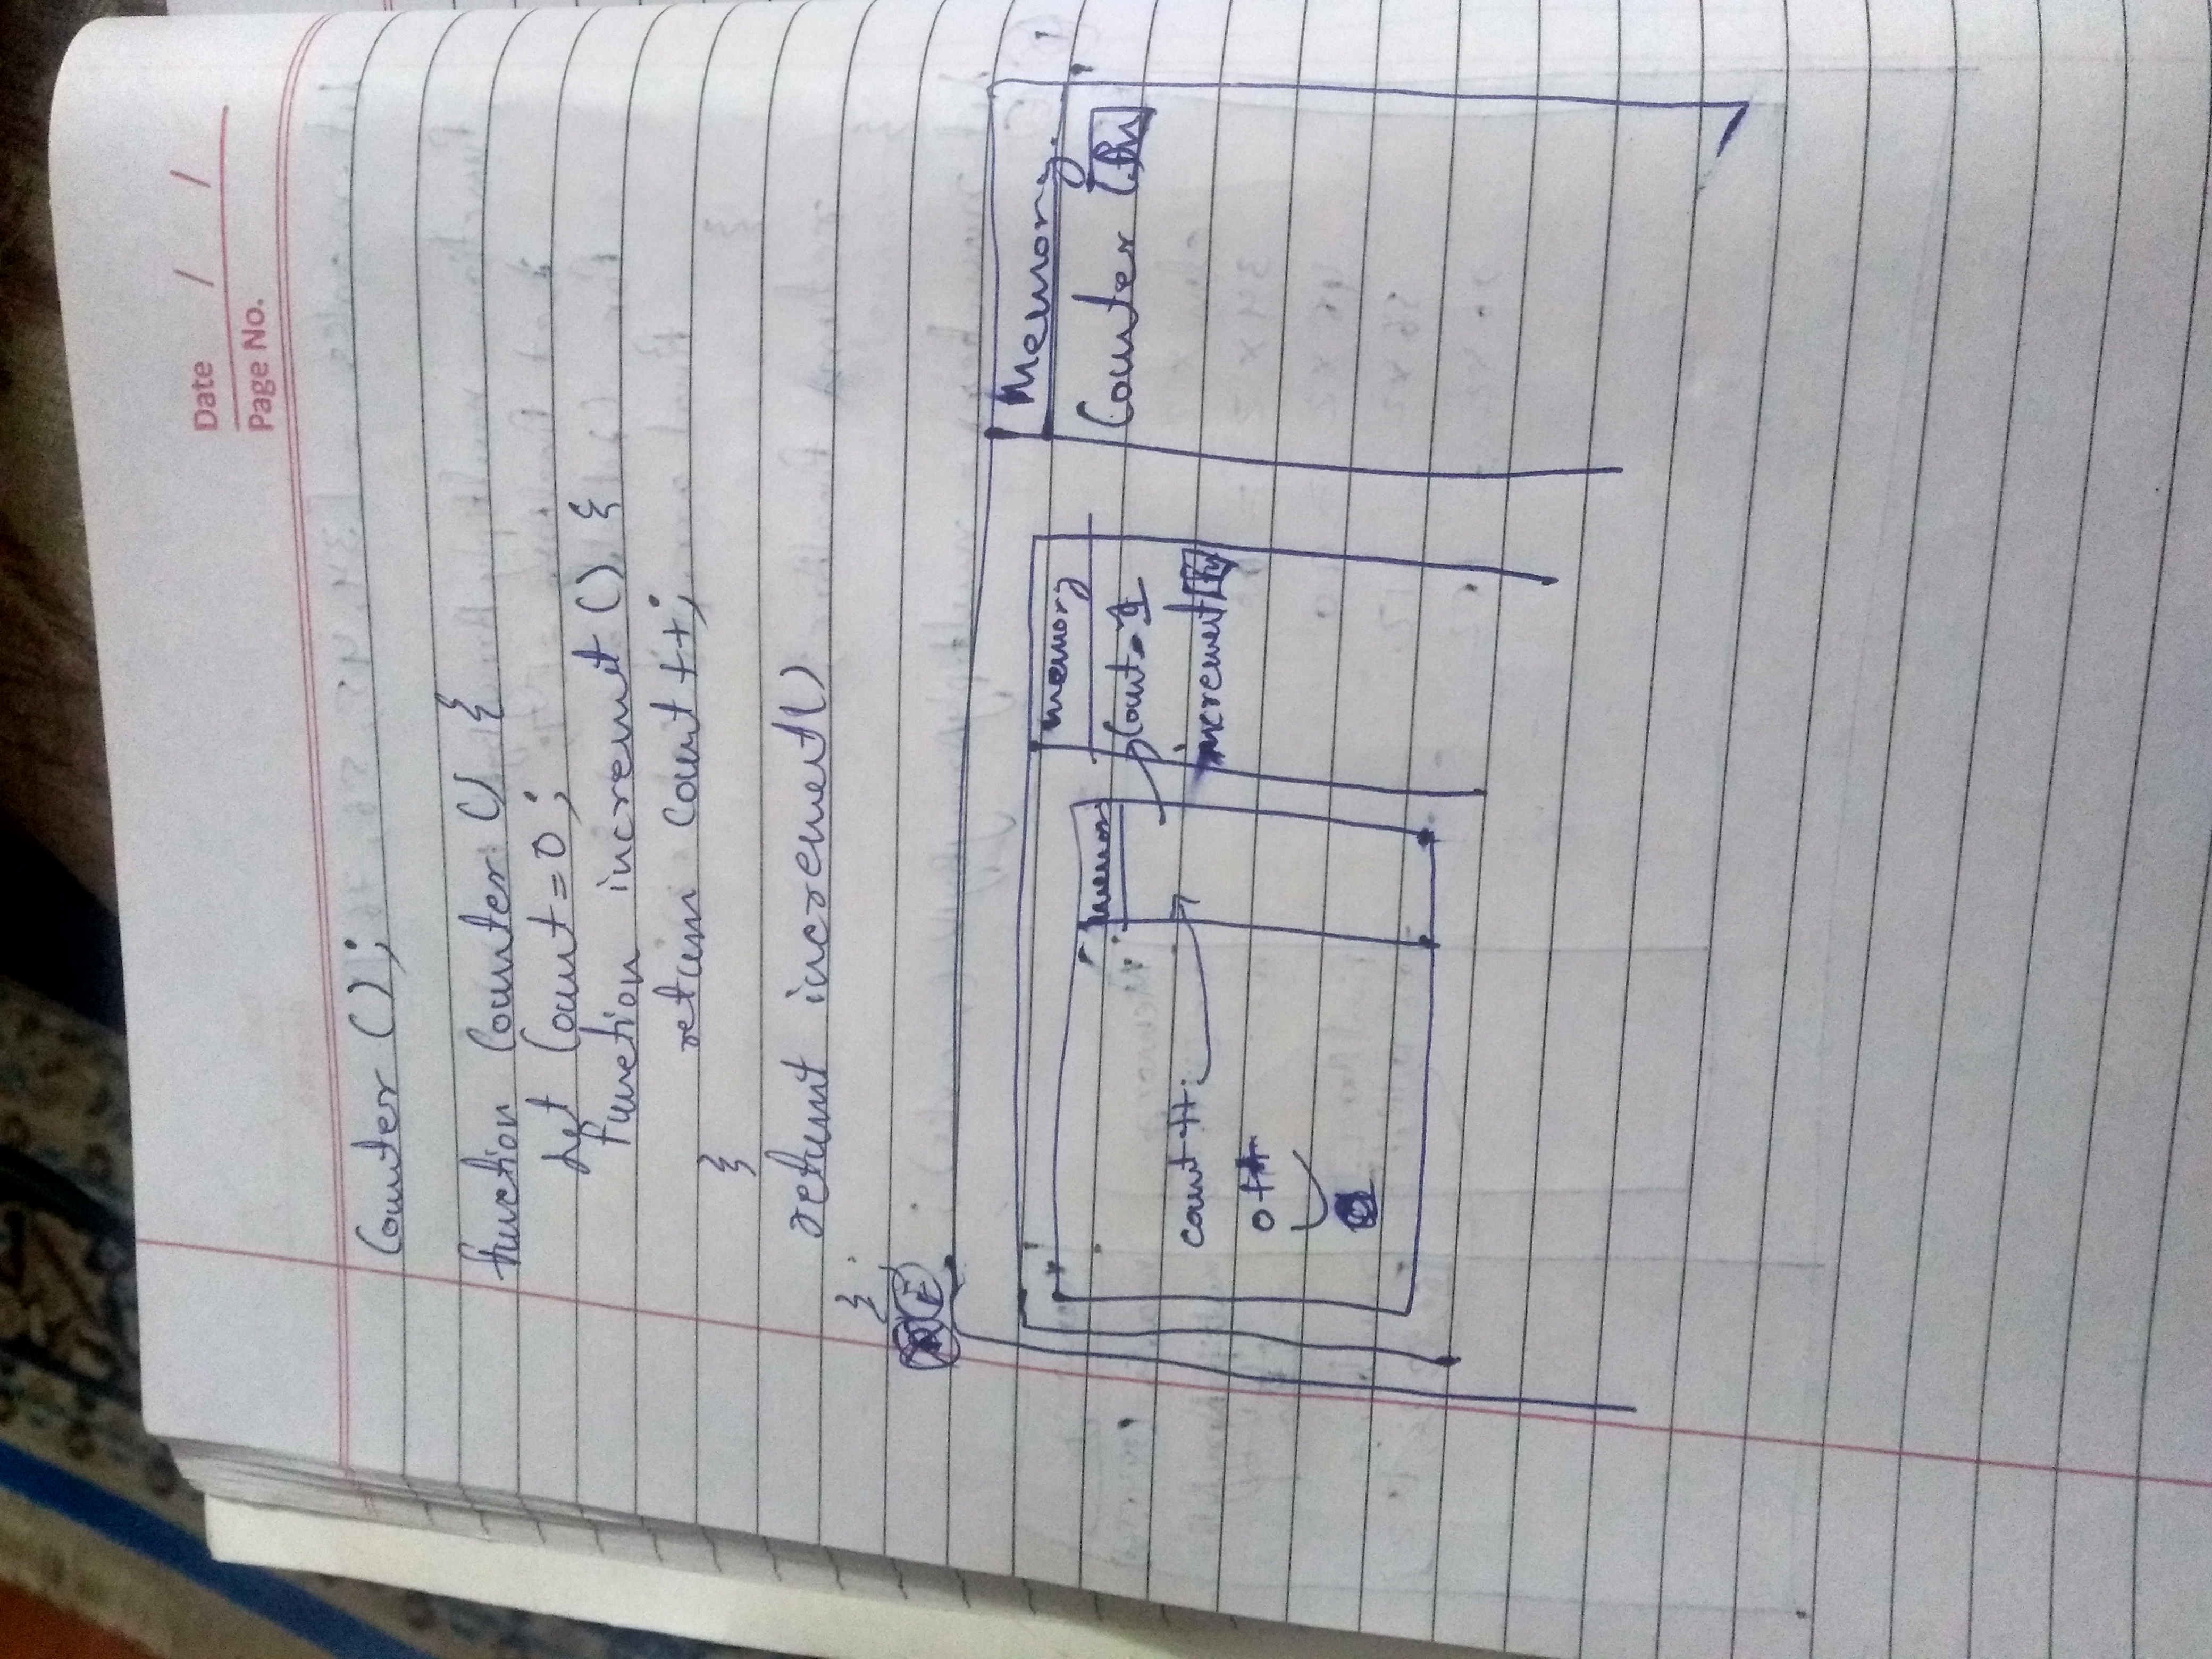 Date / /
Page No.
Counter ();
function Counter () {
let Count = 0;
function incremet () {
return Count ++;
}
returnt increment()
};
E
Memory.
Counter fn
memory
Count = 1
increment fn
memor
count ++;
0++
0